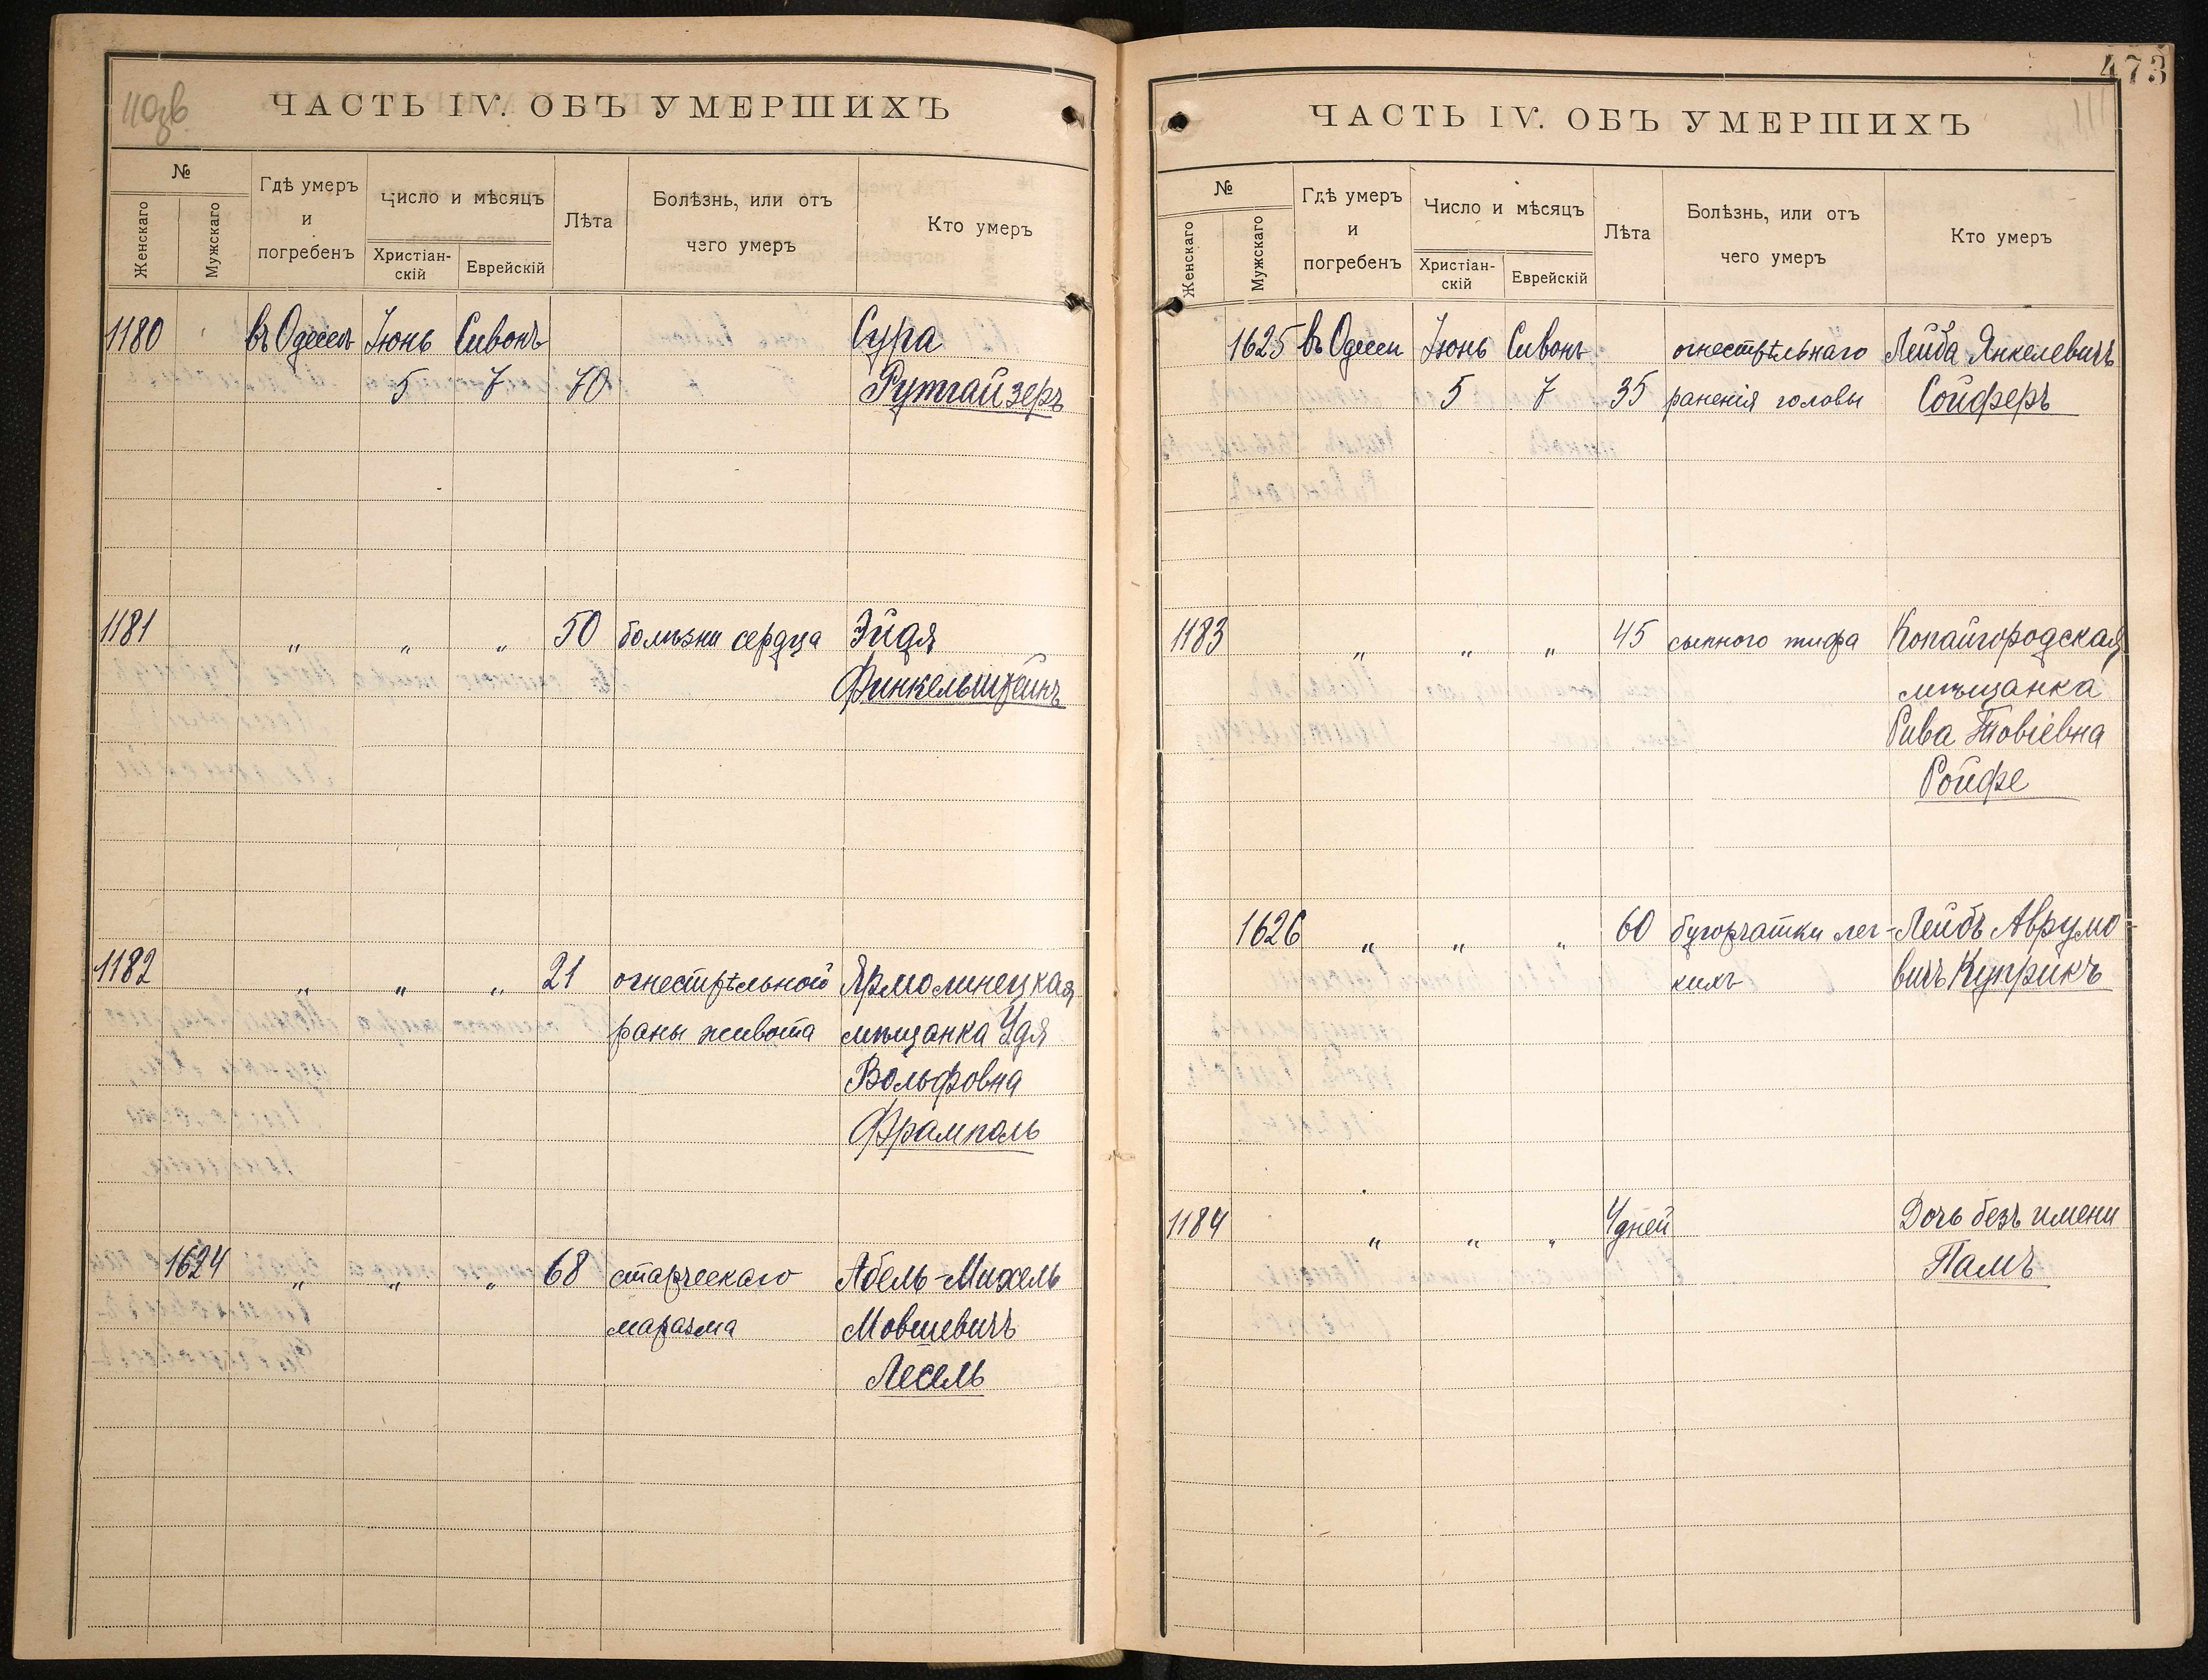 110зв
ЧАСТЬ IV. ОБЪ УМЕРШИХЪ
№
Женскаго
Мужскаго
Гдѣ умеръ
и
погребенъ
Число и мѣсяцъ
Христіан-
скій
Еврейскій
Лѣта
Болѣзнь, или отъ
чего умеръ
Кто умеръ
1180 въ Одессѣ Іюнь Сивонъ Сура
5 7 70 Рутгайзеръ
1181 " " " 50 болѣзни сердца Эйдя
Финкельштейнъ
1182 " " " 21 огнестрѣльной Ярмолинецкая
раны живота мѣщанка Удя
Вольфовна
Фрамполь
1624 " " " 68 старческаго Абель-Михель
маразма Мовшевичъ
Лесель
473
111
ЧАСТЬ IV. ОБЪ УМЕРШИХЪ
№
Женскаго
Мужскаго
Гдѣ умеръ
и
погребенъ
Число и мѣсяцъ
Христіан-
скій
Еврейскій
Лѣта
Болѣзнь, или отъ
чего умеръ
Кто умеръ
1625 въ Одессѣ Іюнь Сивонъ огнестрѣльнаго Лейба Янкелевичъ
5 7 35 раненія головы Сойферъ
1183 " " " 45 сыпного тифа Копайгородская
мѣщанка
Рива Товіевна
Ройфе
1626 " " " 60 бугорчатки лег- Лейбъ Аврумо-
кихъ вичъ Куприкъ
1184 " " " 4 дней Дочь безъ имени
Памъ